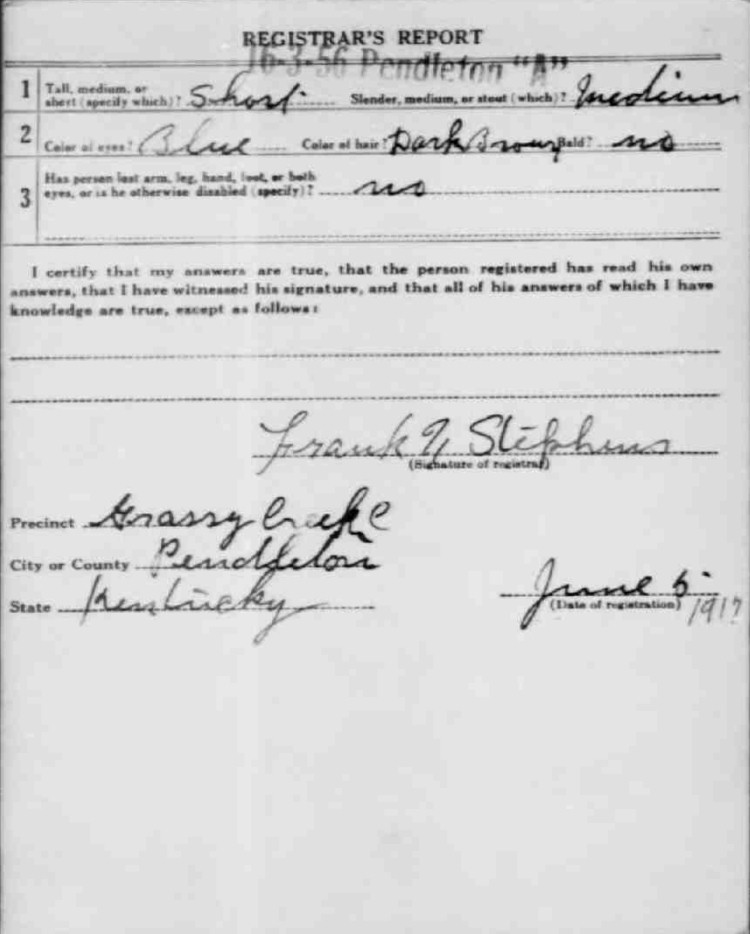 REGISTRAR'S REPORT
16-3-56 Pendleton "A"
1 Tall, medium, or short (specify which)? Short Slender, medium, or stout (which)? Medium
2 Color of eyes? Blue Color of hair? Dark Brown Bald? no
3 Has person lost arm, leg, hand, foot, or both
eyes, or is he otherwise disabled (specify)? no
I certify that my answers are true, that the person registered has read his own
answers, that I have witnessed his signature, and that all of his answers of which I have
knowledge are true, except as follows:
Frank Stephens
(Signature of registrar)
Precinct Grassy Creek
City or County Pendleton
State Kentucky
June 5 1917
(Date of registration)